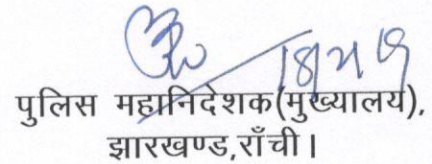 पुलिस महानिदेशक(मुख्यालय),
झारखण्ड,राँची।